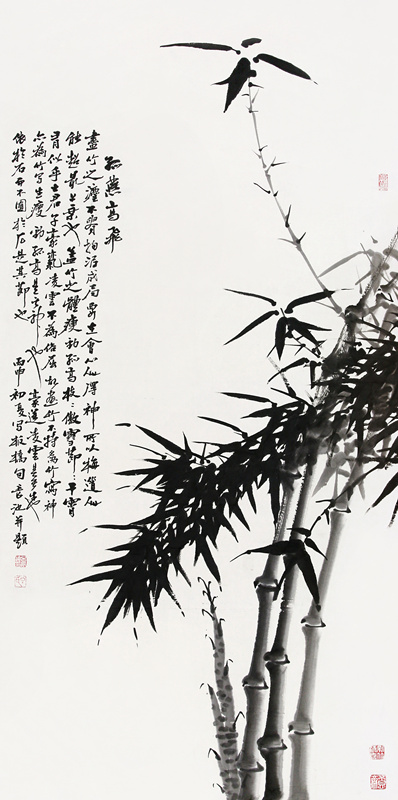 高飛
畫竹之灋不貴拘泥成局要在會心人得神所以梅道人
能超最上乘也蓋竹之體瘦勁孤高枝〻傲雪節〻干霄
有似乎士君子豪氣凌雲不為俗屈故畫竹不特為竹寫神
亦為竹寫生瘦勁孤高是其神也豪邁凌雲是其生也
依於石而不囿於石是其節也 丙申初夏寫板橋句 池并題